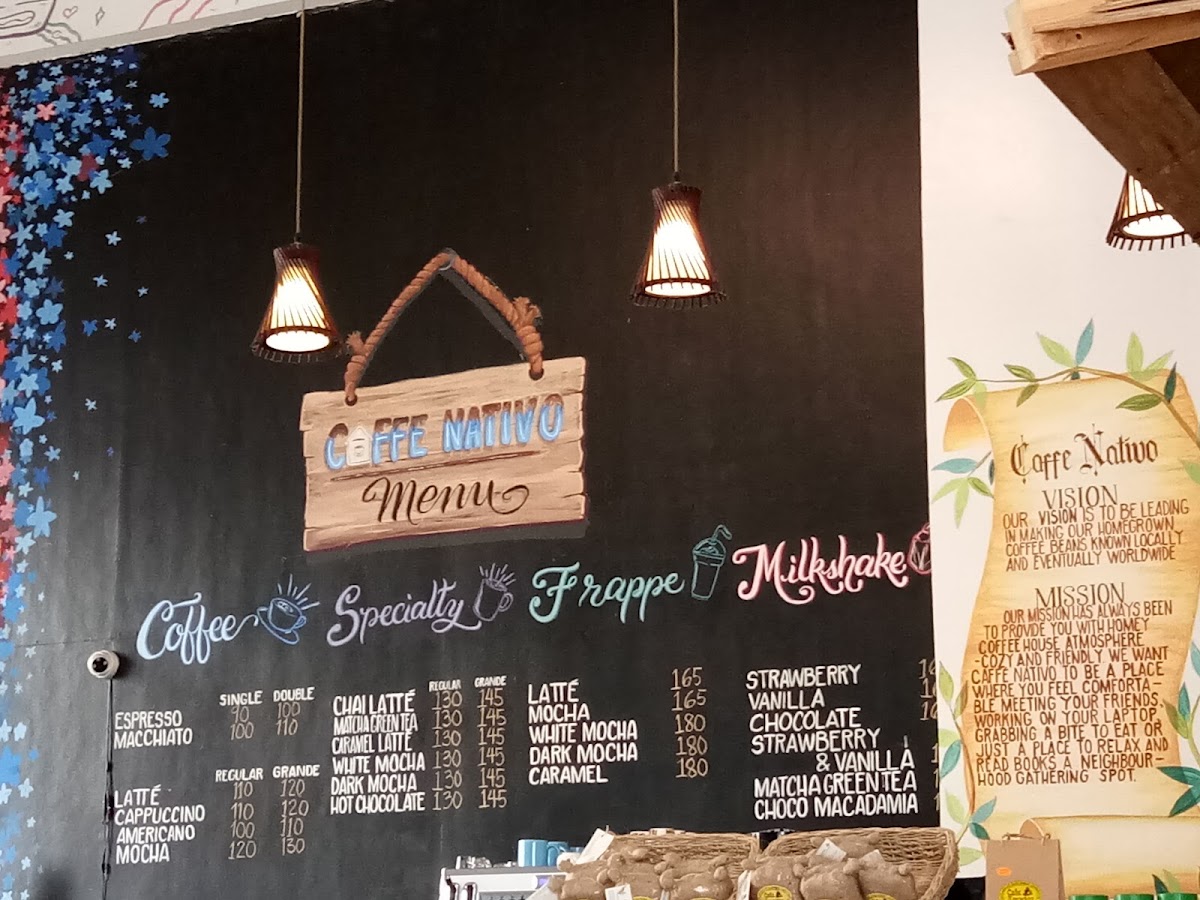 CAFFE NATIVO
Menu
Coffee
SINGLE DOUBLE
ESPRESSO 90 100
MACCHIATO 100 110
REGULAR GRANDE
LATTÉ 110 120
CAPPUCCINO 110 120
AMERICANO 100 110
MOCHA 120 130
Specialty
REGULAR GRANDE
CHAI LATTÉ 130 145
MATCHA GREEN TEA 130 145
CARAMEL LATTÉ 130 145
WHITE MOCHA 130 145
DARK MOCHA 130 145
HOT CHOCOLATE 130 145
Frappe
LATTÉ 165
MOCHA 165
WHITE MOCHA 180
DARK MOCHA 180
CARAMEL 180
Milkshake
STRAWBERRY
VANILLA
CHOCOLATE
STRAWBERRY
& VANILLA
MATCHA GREEN TEA
CHOCO MACADAMIA
Caffe Nativo
VISION
OUR VISION IS TO BE LEADING
IN MAKING OUR HOMEGROWN
COFFEE BEANS KNOWN LOCALLY
AND EVENTUALLY WORLDWIDE
MISSION
OUR MISSION HAS ALWAYS BEEN
TO PROVIDE YOU WITH HOMEY
COFFEE HOUSE ATMOSPHERE
-COZY AND FRIENDLY. WE WANT
CAFFE NATIVO TO BE A PLACE
WHERE YOU FEEL COMFORTA-
BLE MEETING YOUR FRIENDS,
WORKING ON YOUR LAPTOP,
GRABBING A BITE TO EAT OR
JUST A PLACE TO RELAX AND
READ BOOKS. A NEIGHBOUR-
HOOD GATHERING SPOT.